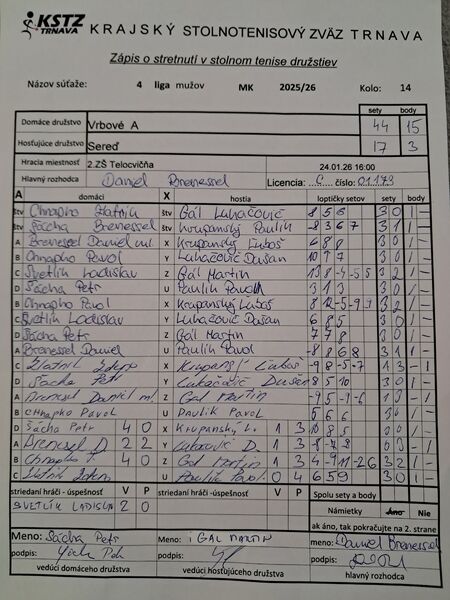 KSTZ
TRNAVA
KRAJSKÝ STOLNOTENISOVÝ ZVÄZ TRNAVA
Zápis o stretnutí v stolnom tenise družstiev
Názov súťaže: 4 liga mužov MK 2025/26 Kolo: 14
sety body
Domáce družstvo Vrbové A 44 15
Hosťujúce družstvo Sereď 17 3
Hracia miestnosť 2.ZŠ Telocvičňa 24.01.26 16:00
Hlavný rozhodca Daniel Brenessel Licencia: C číslo: 01173
A domáci X hostia loptičky setov sety body
štv Chnapko Zlatník štv Gál Lukačovič 8 5 6 3 0 1 -
štv Sácha Brenessel štv Krupanský Paulík -8 3 6 7 3 1 1 -
A Brenessel Daniel ml. X Krupanský Ľuboš 6 8 8 3 0 1 -
B Chnapko Pavol Y Lukačovič Dušan 10 9 7 3 0 1 -
C Svetlík Ladislav Z Gál Martin 3 2 1 -
D Sácha Petr U Paulík Pavol 3 1 3 3 0 1 -
B Chnapko Pavol X Krupanský Ľuboš 3 2 1 -
C Svetlík Ladislav Y Lukačovič Dušan 6 8 5 3 0 1 -
D Sácha Petr Z Gál Martin 7 7 8 3 0 1 -
A Brenessel Daniel U Paulík Pavol -8 8 6 8 3 1 1 -
C Zlatník X Krupanský Ľuboš -9 8 -5 -7 1 3 - 1
D Sácha Petr Y Lukačovič Dušan 8 5 10 3 0 1 -
A Brenessel Daniel ml. Z Gál Martin -9 5 -9 -6 1 3 - 1
B Chnapko Pavol U Paulík Pavol 5 6 6 3 0 1 -
D Sácha Petr 4 0 X Krupanský Ľ. 1 3
A Brenessel D 2 2 Y Lukačovič D. 1 3
B Chnapko P. 4 0 Z Gál Martin 1 3 3 2 1 -
C Zlatník U Paulík Pavol 0 4 6 5 9 3 0 1 -
striedaní hráči - úspešnosť V P striedaní hráči - úspešnosť V P Spolu sety a body
SVETLÍK LADISLAV 2 0 Námietky Áno Nie
ak áno, tak pokračujte na 2. strane
Meno: Sácha Petr meno: GÁL MARTIN meno: Daniel Brenessel
podpis: podpis: podpis:
vedúci domáceho družstva vedúci hosťujúceho družstva hlavný rozhodca